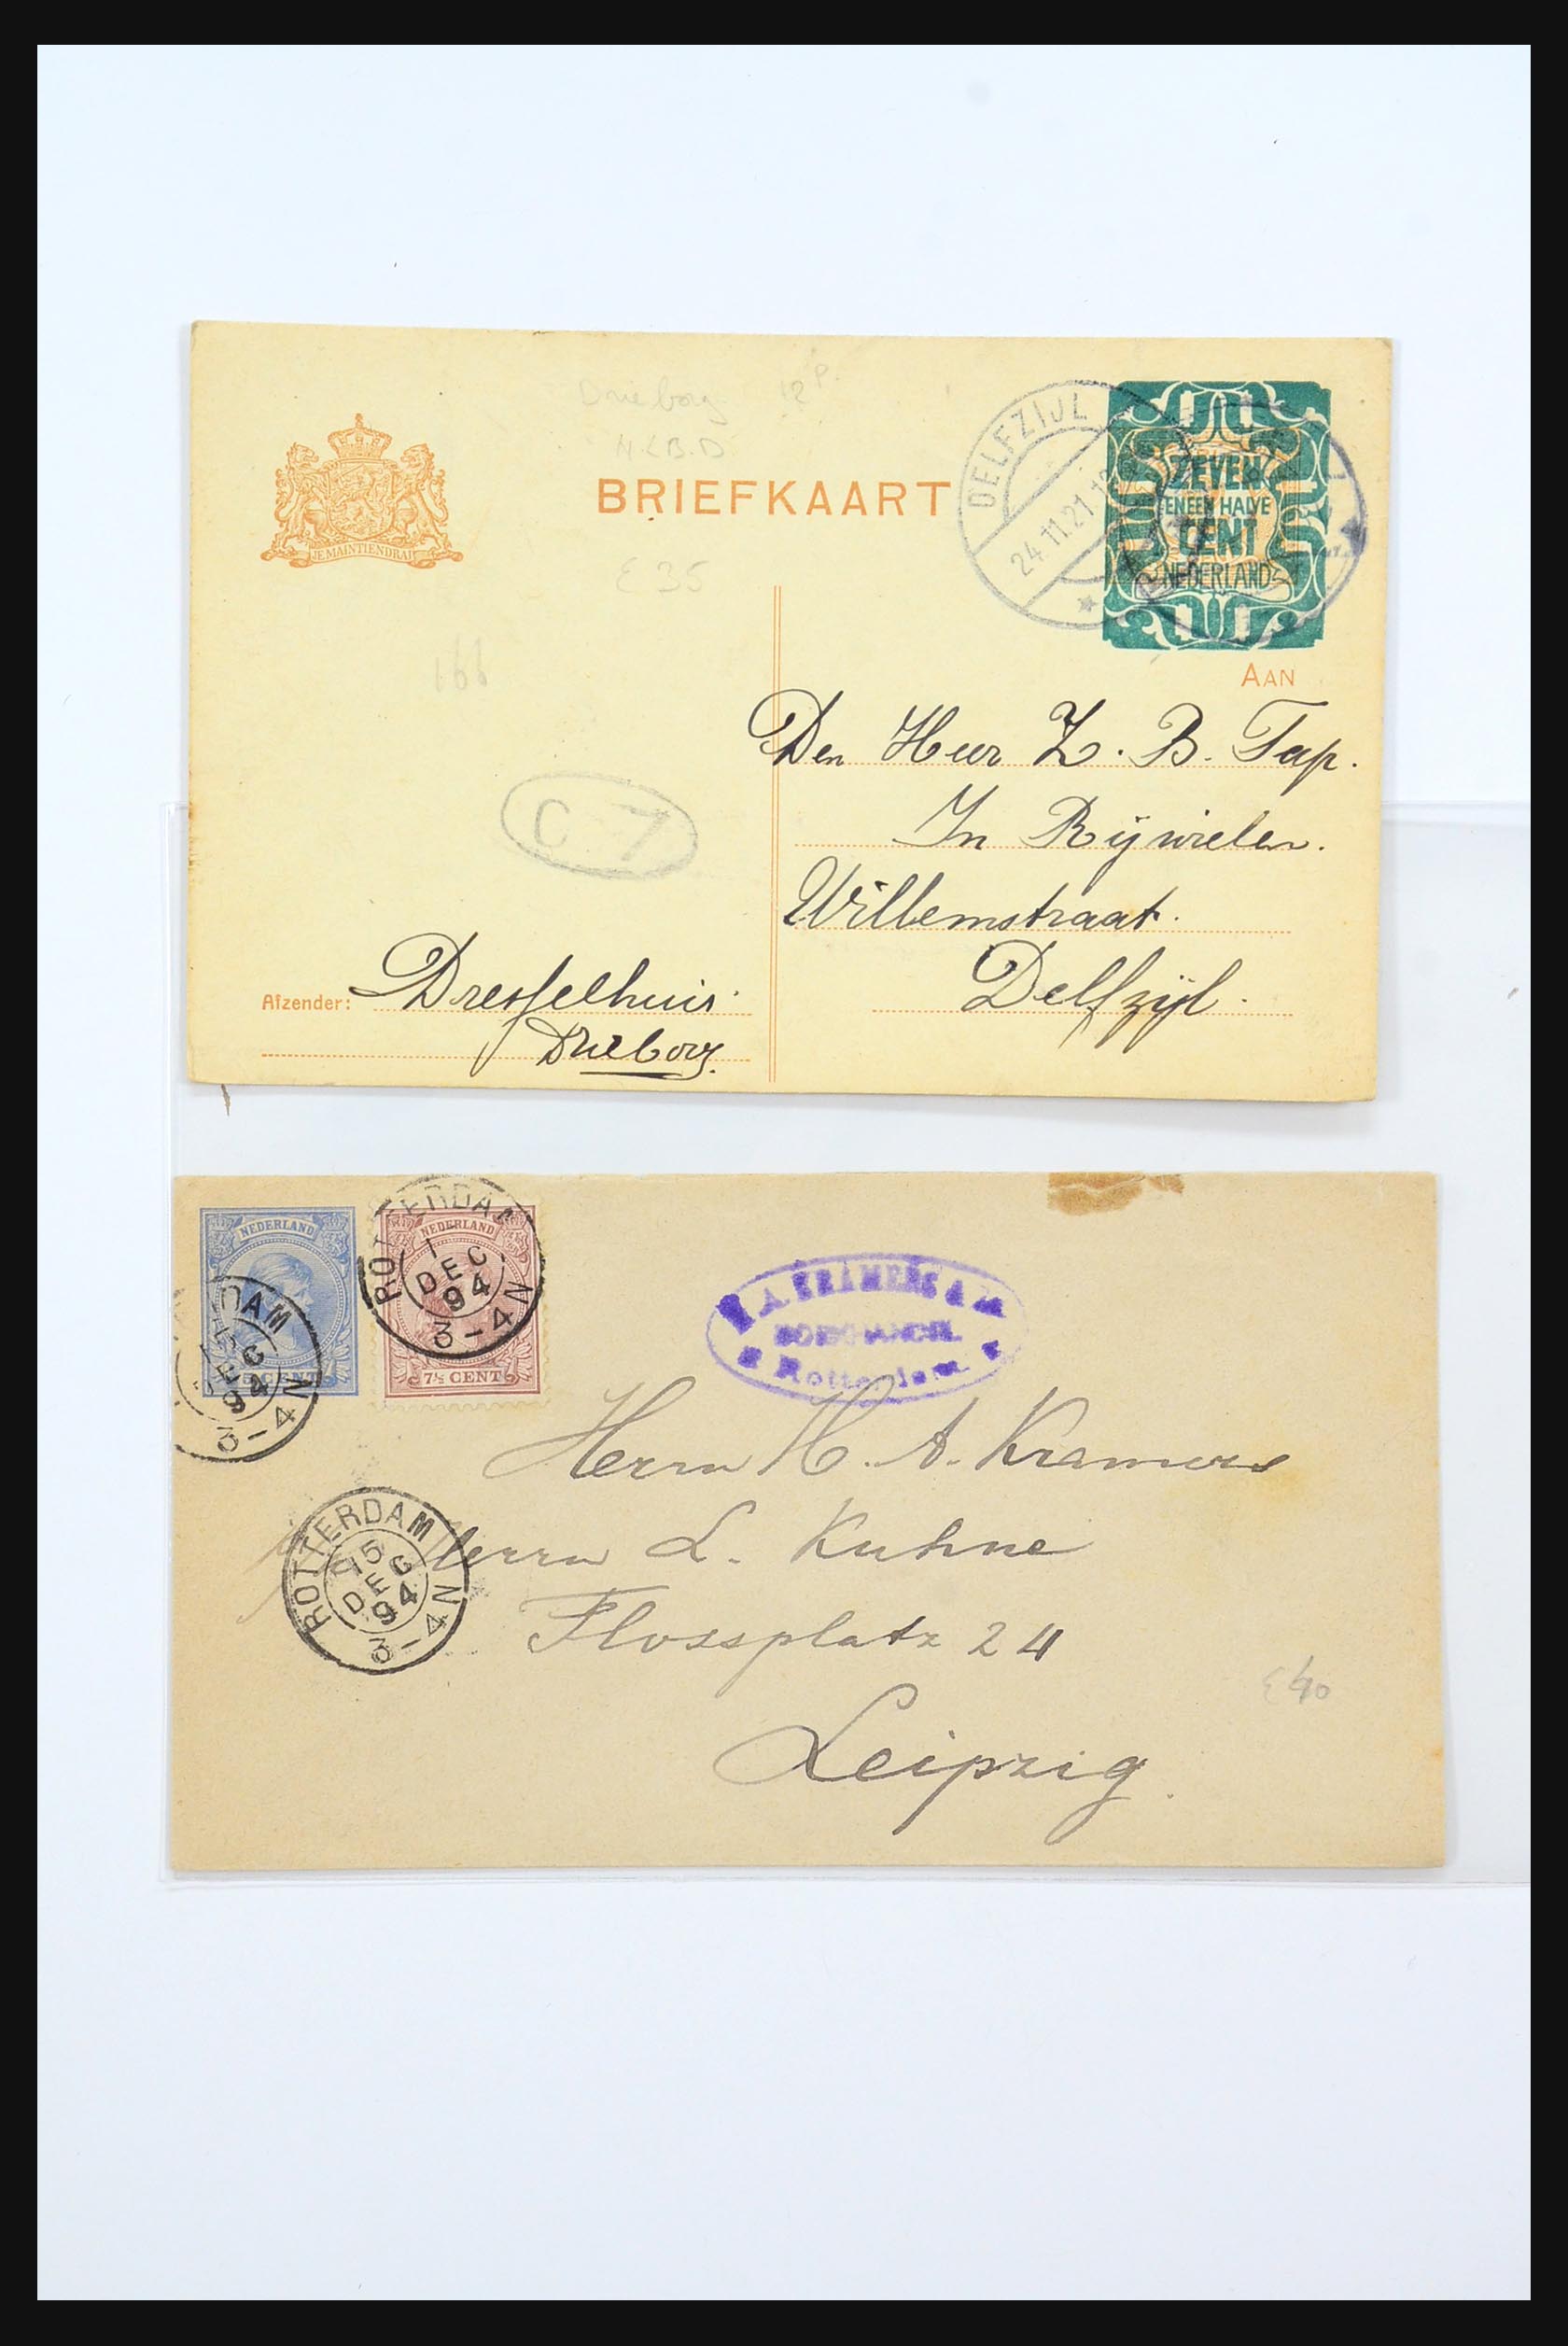 Drieborg 12 P.
N.L.B.D
JE MAINTIENDRAI
BRIEFKAART
E 35
DELFZIJL
24.11.21.12
ZEVEN
EN EEN HALVE
CENT
NEDERLAND
AAN
Den Heer Z. B. Tap.
In Rijwielen.
Willemstraat.
Delfzijl.
166
C 7
Afzender: Dresselhuis
Drieborg.
NEDERLAND
5 CENT
DAM
15
DEC
94
3-4N
NEDERLAND
7½ CENT
ROTTERDAM
1
DEC
94
3-4N
H. A. KRAMERS & 
BOEKHANDEL
Rotterdam
Herrn H. A. Kramers
p/a Herrn L. Kuhne
Flossplatz 24
Leipzig.
ROTTERDAM
15
DEC
94
3-4N
E 40